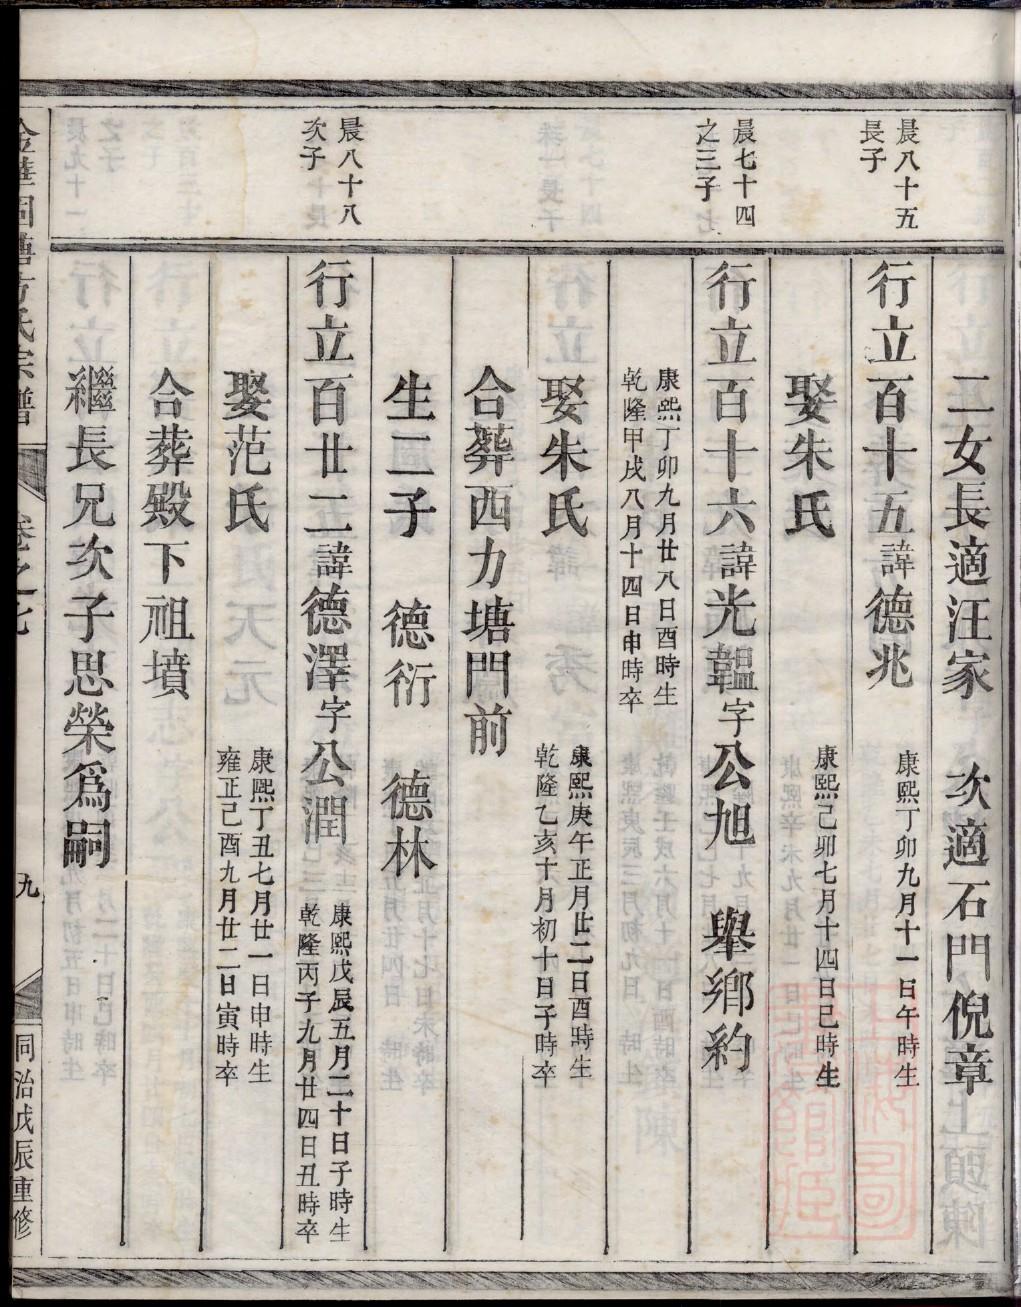 二女長適汪家　次適石門倪章
晨八十五
長子
行立百十五諱德兆
康熙丁卯九月十一日午時生
娶朱氏
康熙己卯七月十四日巳時生
晨七十四
之三子
行立百十六諱光韞字公旭　舉鄉約
康熙丁卯九月廿八日酉時生
乾隆甲戌八月十四日申時卒
娶朱氏
康熙庚午正月廿二日酉時生
乾隆乙亥十月初十日子時卒
合葬西力塘門前
生二子　德衍　德林
晨八十八
次子
行立百廿二諱德澤字公潤
康熙戊辰五月二十日子時生
乾隆丙子九月廿四日丑時卒
娶范氏
康熙丁丑七月廿一日申時生
雍正己酉九月廿二日寅時卒
合葬殿下祖墳
繼長兄次子思榮爲嗣
氏宗譜
卷之七
九
同治戊辰重修